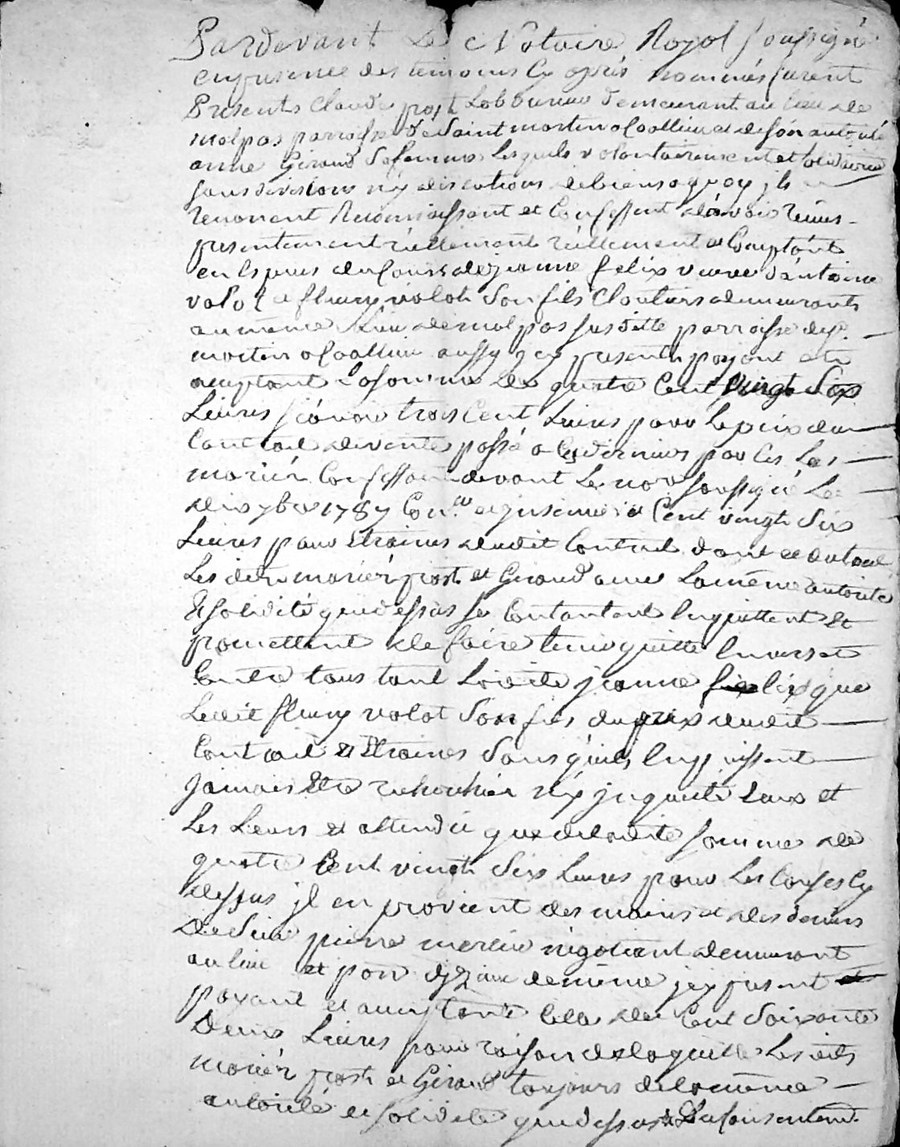 Pardevant Le Notaire Royal soussigné
en presence des temoins cy après nommés furent
Presents Claude prost Laboureur demeurant au lieu de
malpas parroisse de Saint martin et de son autorité
anne Giraud Sa femme Lesquels volontairement et
sans division ny discutions de biens a quoy ils
renoncent Reconnoissent et Confessent avoir reçus
presentement réellement réellement et Comptant
en Espèces du Cours de jeanne felix veuve d'antoine
valot et fleury valot Son fils Cloutiers demeurants
au même Lieu de malpas susditte parroisse de st
martin aussy jcy present payant et
acceptant La somme de quatre Cent vingt Six
Livres sçavoir trois Cent Livres pour Le prix du
Contrat de vente passé a ces derniers par Les
mariés Confessants devant Le no.re soussigné Le
dix 7bre 1787 Con.lé et Cent vingt Six
Livres pour Etraines dudit Contrat, dont et du total
Les dits mariés prost et Giraud avec La même autorité
& solidité que dessus se Contantent Enquittent et
promettent de faire tenir quitte Envers et
Contre tous tant Ladite jeanne felix que
Ledit fleury valot Son fils du prix dudit
Contrait & Etraines Sans qu'ils En puissent
Jamais Etre recherchés ny inquiétés Eux et
Les Leurs & attendu que de Ladite somme de
quatre Cent vingt Six Livres pour Les Causes Cy
dessus il en provient des mains et des deniers
De Sieur pierre mercier négotiant demeurant
au lieu et par de même jcy present
payant et acceptant Cela de Cent Soixante
Deux Livres pour raison de Laquelle Les dits
mariés prost et Giraud toujours de la même
autorité et solidité que dessus Consentent